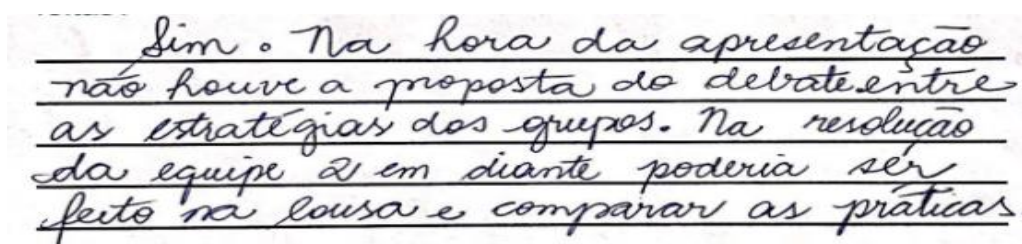 Sim. Na hora da apresentação
não houve a proposta do debate entre
as estratégias dos grupos. Na resolução
da equipe 2 em diante poderia ser
feito na lousa e comparar as práticas